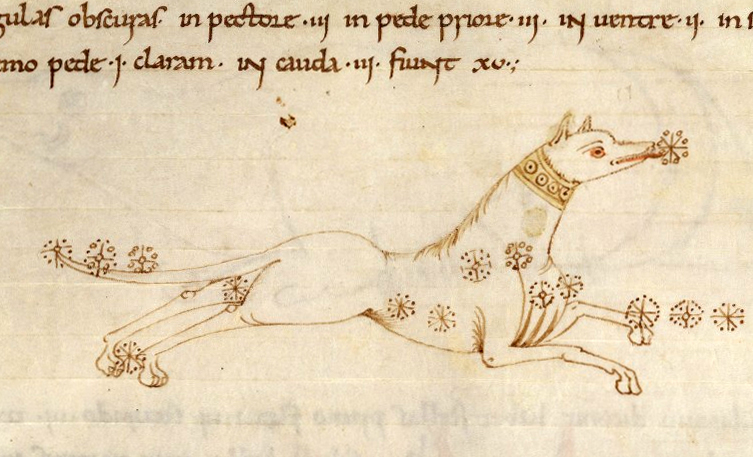 gulas obscuras in pectore ·iii in pede priore· iii· in uentre· ii· in s
imo pede· i· claram· in cauda· iii· fiunt xv·;